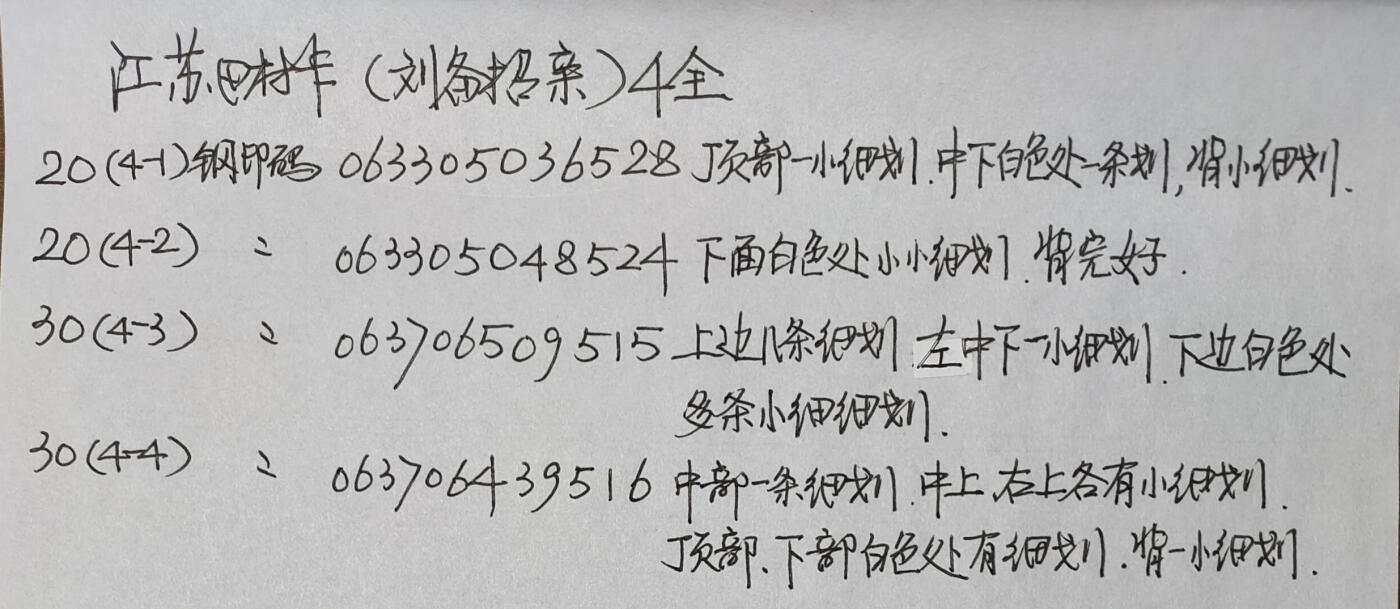 江苏田村卡（刘备招亲）4全
20(4-1)钢印码 063305036528 顶部一小细划.中下白色处一条划,背小细划.
20(4-2) 〃 063305048524 下面白色处小小细划.背完好.
30(4-3) 〃 063706509515 上边几条细划.左中下一小细划.下边白色处
多条小细细划.
30(4-4) 〃 063706439516 中部一条细划.中上、右上各有小细划.
顶部、下部白色处有细划.背一小细划.